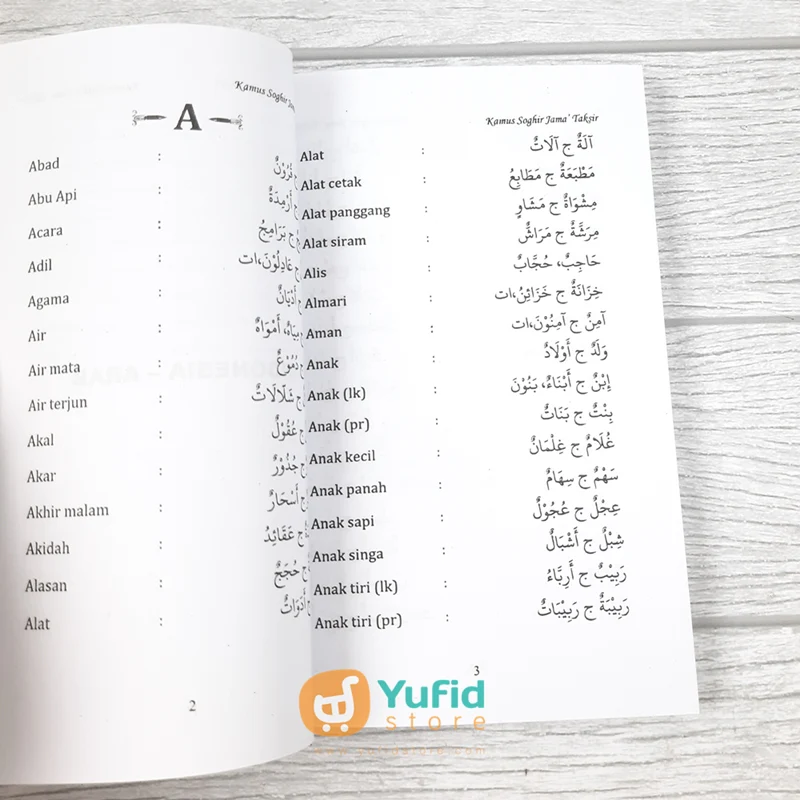 Kamus Soghir
A
Abad : ج قُرُوْنٌ
Abu Api : ج أَرْمِدَةٌ
Acara : ج بَرَامِجُ
Adil : ج عَادِلُوْنَ،ات
Agama : ج أَدْيَانٌ
Air : مِيَاهٌ، أَمْوَاهٌ
Air mata : ج دُمُوْعٌ
Air terjun : ج شَلَالَاتٌ
Akal : ج عُقُوْلٌ
Akar : ج جُذُوْرٌ
Akhir malam : ج أَسْحَارٌ
Akidah : ج عَقَائِدُ
Alasan : ج حُجَجٌ
Alat : ج أَدَوَاتٌ
2
Kamus Soghir Jama' Taksir
Alat : آلَةٌ ج آلَاتٌ
Alat cetak : مَطْبَعَةٌ ج مَطَابِعُ
Alat panggang : مِشْوَاةٌ ج مَشَاوٍ
Alat siram : مِرَشَّةٌ ج مَرَاشٌّ
Alis : حَاجِبٌ، حُجَّابٌ
Almari : خِزَانَةٌ ج خَزَائِنُ،ات
Aman : آمِنٌ ج آمِنُوْنَ،ات
Anak : وَلَدٌ ج أَوْلَادٌ
Anak (lk) : إِبْنٌ ج أَبْنَاءٌ، بَنُوْنَ
Anak (pr) : بِنْتٌ ج بَنَاتٌ
Anak kecil : غُلَامٌ ج غِلْمَانٌ
Anak panah : سَهْمٌ ج سِهَامٌ
Anak sapi : عِجْلٌ ج عُجُوْلٌ
Anak singa : شِبْلٌ ج أَشْبَالٌ
Anak tiri (lk) : رَبِيْبٌ ج أَرِبَّاءُ
Anak tiri (pr) : رَبِيْبَةٌ ج رَبِيْبَاتٌ
3
Yufid
store